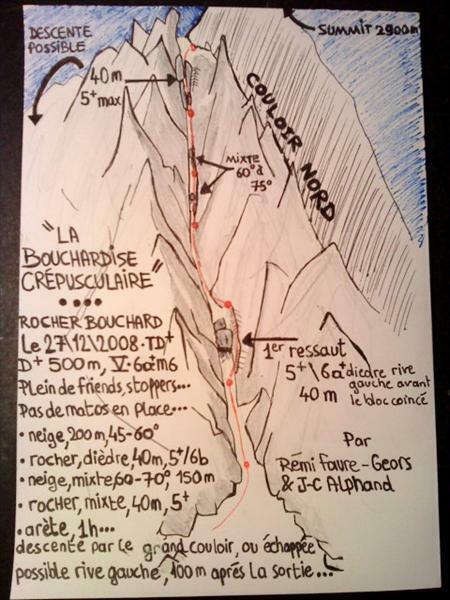 DESCENTE
POSSIBLE
SUMMIT 2900m
40m
5+ max
COULOIR NORD
MIXTE
60° à
75°
"LA
BOUCHARDISE
CRÉPUSCULAIRE"
ROCHER BOUCHARD
Le 27\12\2008. TD+
D+ 500m, V. 6a+ M6
Plein de friends, stoppers...
Pas de matos en place...
• neige, 200m, 45-60°
• rocher, dièdre, 40m, 5+/6b
• neige, mixte, 60-70°, 150m
• rocher, mixte, 40m, 5+
• arète, 1h...
descente par le grand couloir, ou échappée
possible rive gauche, 100m aprés la sortie...
1er ressaut
5+\6a+ diedre rive
gauche avant
40m le bloc coincé
Par
Rémi Faure-Geors
& J-C Alphand